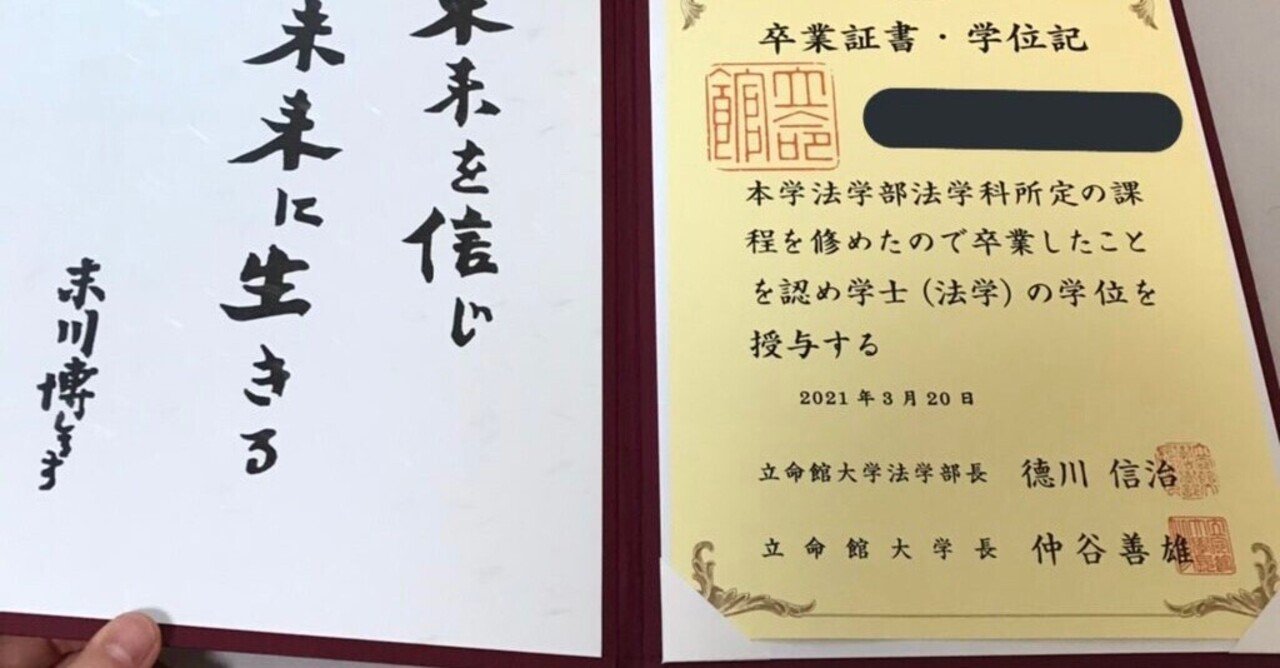 未来を信じ
未来に生きる
末川博しるす
卒業証書・学位記
立命館
本学法学部法学科所定の課
程を修めたので卒業したこと
を認め学士(法学)の学位を
授与する
2021年3月20日
立命館大学法学部長 德川 信治
立命館大学長 仲谷善雄